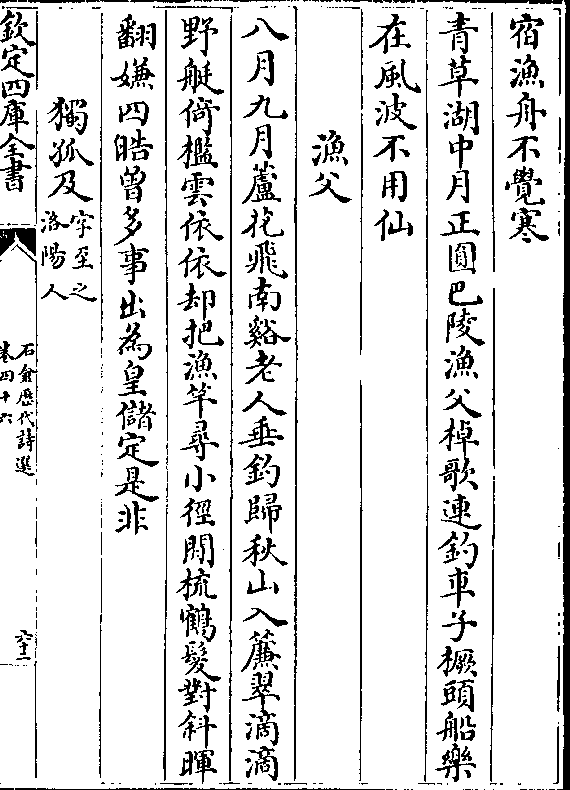 宿漁舟不覺寒
青草湖中月正圓巴陵漁父棹歌連釣車子橛頭船樂
在風波不用仙
漁父
八月九月蘆花飛南谿老人垂釣歸秋山入簾翠滴滴
野艇倚檻雲依依却把漁竿尋小徑閒梳鶴髮對斜暉
翻嫌四皓曾多事出為皇儲定是非
獨孤及字至之
洛陽人
欽定四庫全書
石倉歴代詩選
卷四十六
六十二